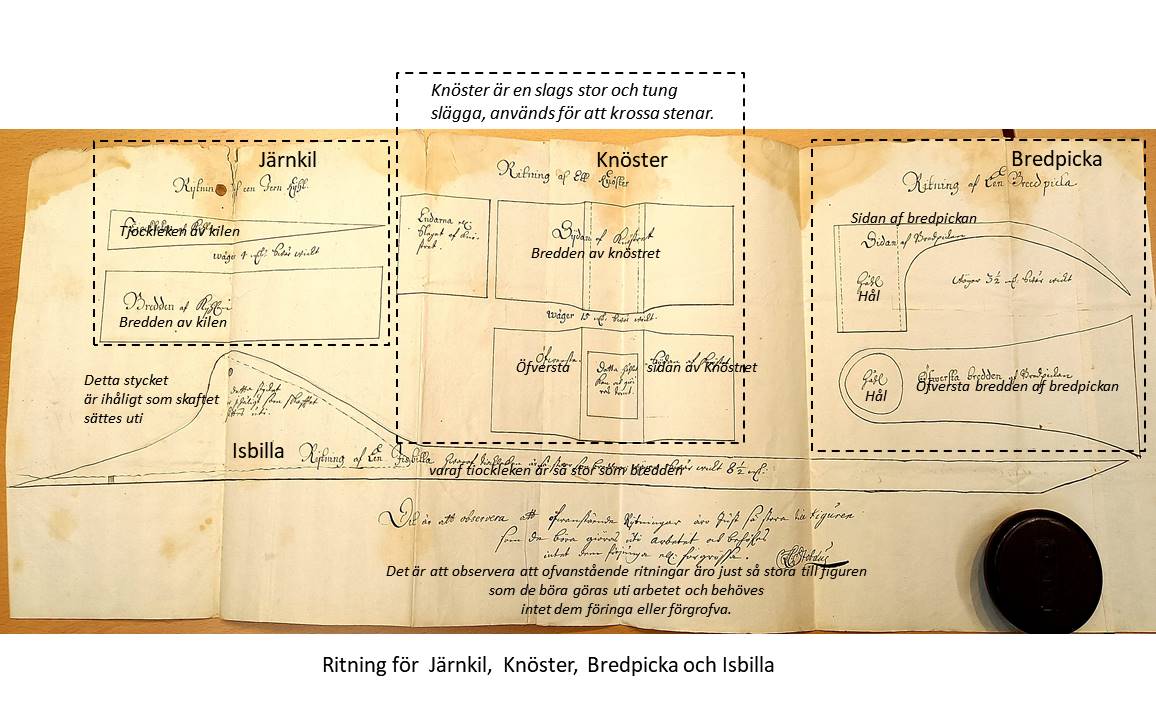 Knöster är en slags stor och tung
slägga, används för att krossa stenar.
Järnkil
Ritning af een Jern
Tjockleken av kilen
wäger 4 wicht
Bredden af
Bredden av kilen
Knöster
Ritning af Ett Knöster
Endarna
Slaget af Knö-
stret.
Sÿdan af Knöstret
Bredden av knöstret
Wäger 15 wicht.
Öfversta
sidan av Knöstret
Bredpicka
Ritning af Een Breedpicka
Sidan af bredpickan
Sidan af Bredpickan
Håhl
Hål
Wäger 3½ wicht
Håhl
Hål
Öfwersta bredden af Bredpickan
Öfversta bredden af bredpickan
Detta stycket
är ihåligt som skaftet
sättes uti
detta stÿcket
ihåligt som skafftet
Isbilla
Ritning af Een Jisbilla
varaf tiockleken är så stor som bredden
wicht 8½
Det är att observera att ofwanstående Ritningar äro just så stora till figuren
som de böra giöras uti arbetet och behöfwes
intet dem förringa ell: förgröfwa.
Det är att observera att ofvanstående ritningar äro just så stora till figuren
som de böra göras uti arbetet och behöves
intet dem föringa eller förgrofva.
Ritning för Järnkil, Knöster, Bredpicka och Isbilla